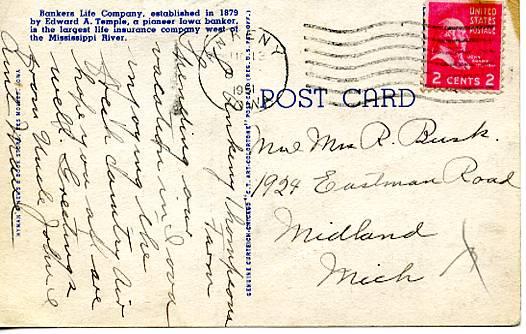 Bankers Life Company, established in 1879
by Edward A. Temple, a pioneer Iowa banker,
is the largest life insurance company west of
the Mississippi River.
Ankeny Thompsons
Farm
Spending our
vacation in Iowa
enjoying the
fresh country air
hope you all are
well. Greetings
from Uncle John &
Aunt
GENUINE CURTEICH-CHICAGO "C.T. ART-COLORTONE" POST CARD (REG. U.S. PAT. OFF.)
POST CARD
UNITED
STATES
POSTAGE
JOHN
ADAMS
2 CENTS 2
Mr & Mrs R. Busk.
1924 Eastman Road
Midland
Mich